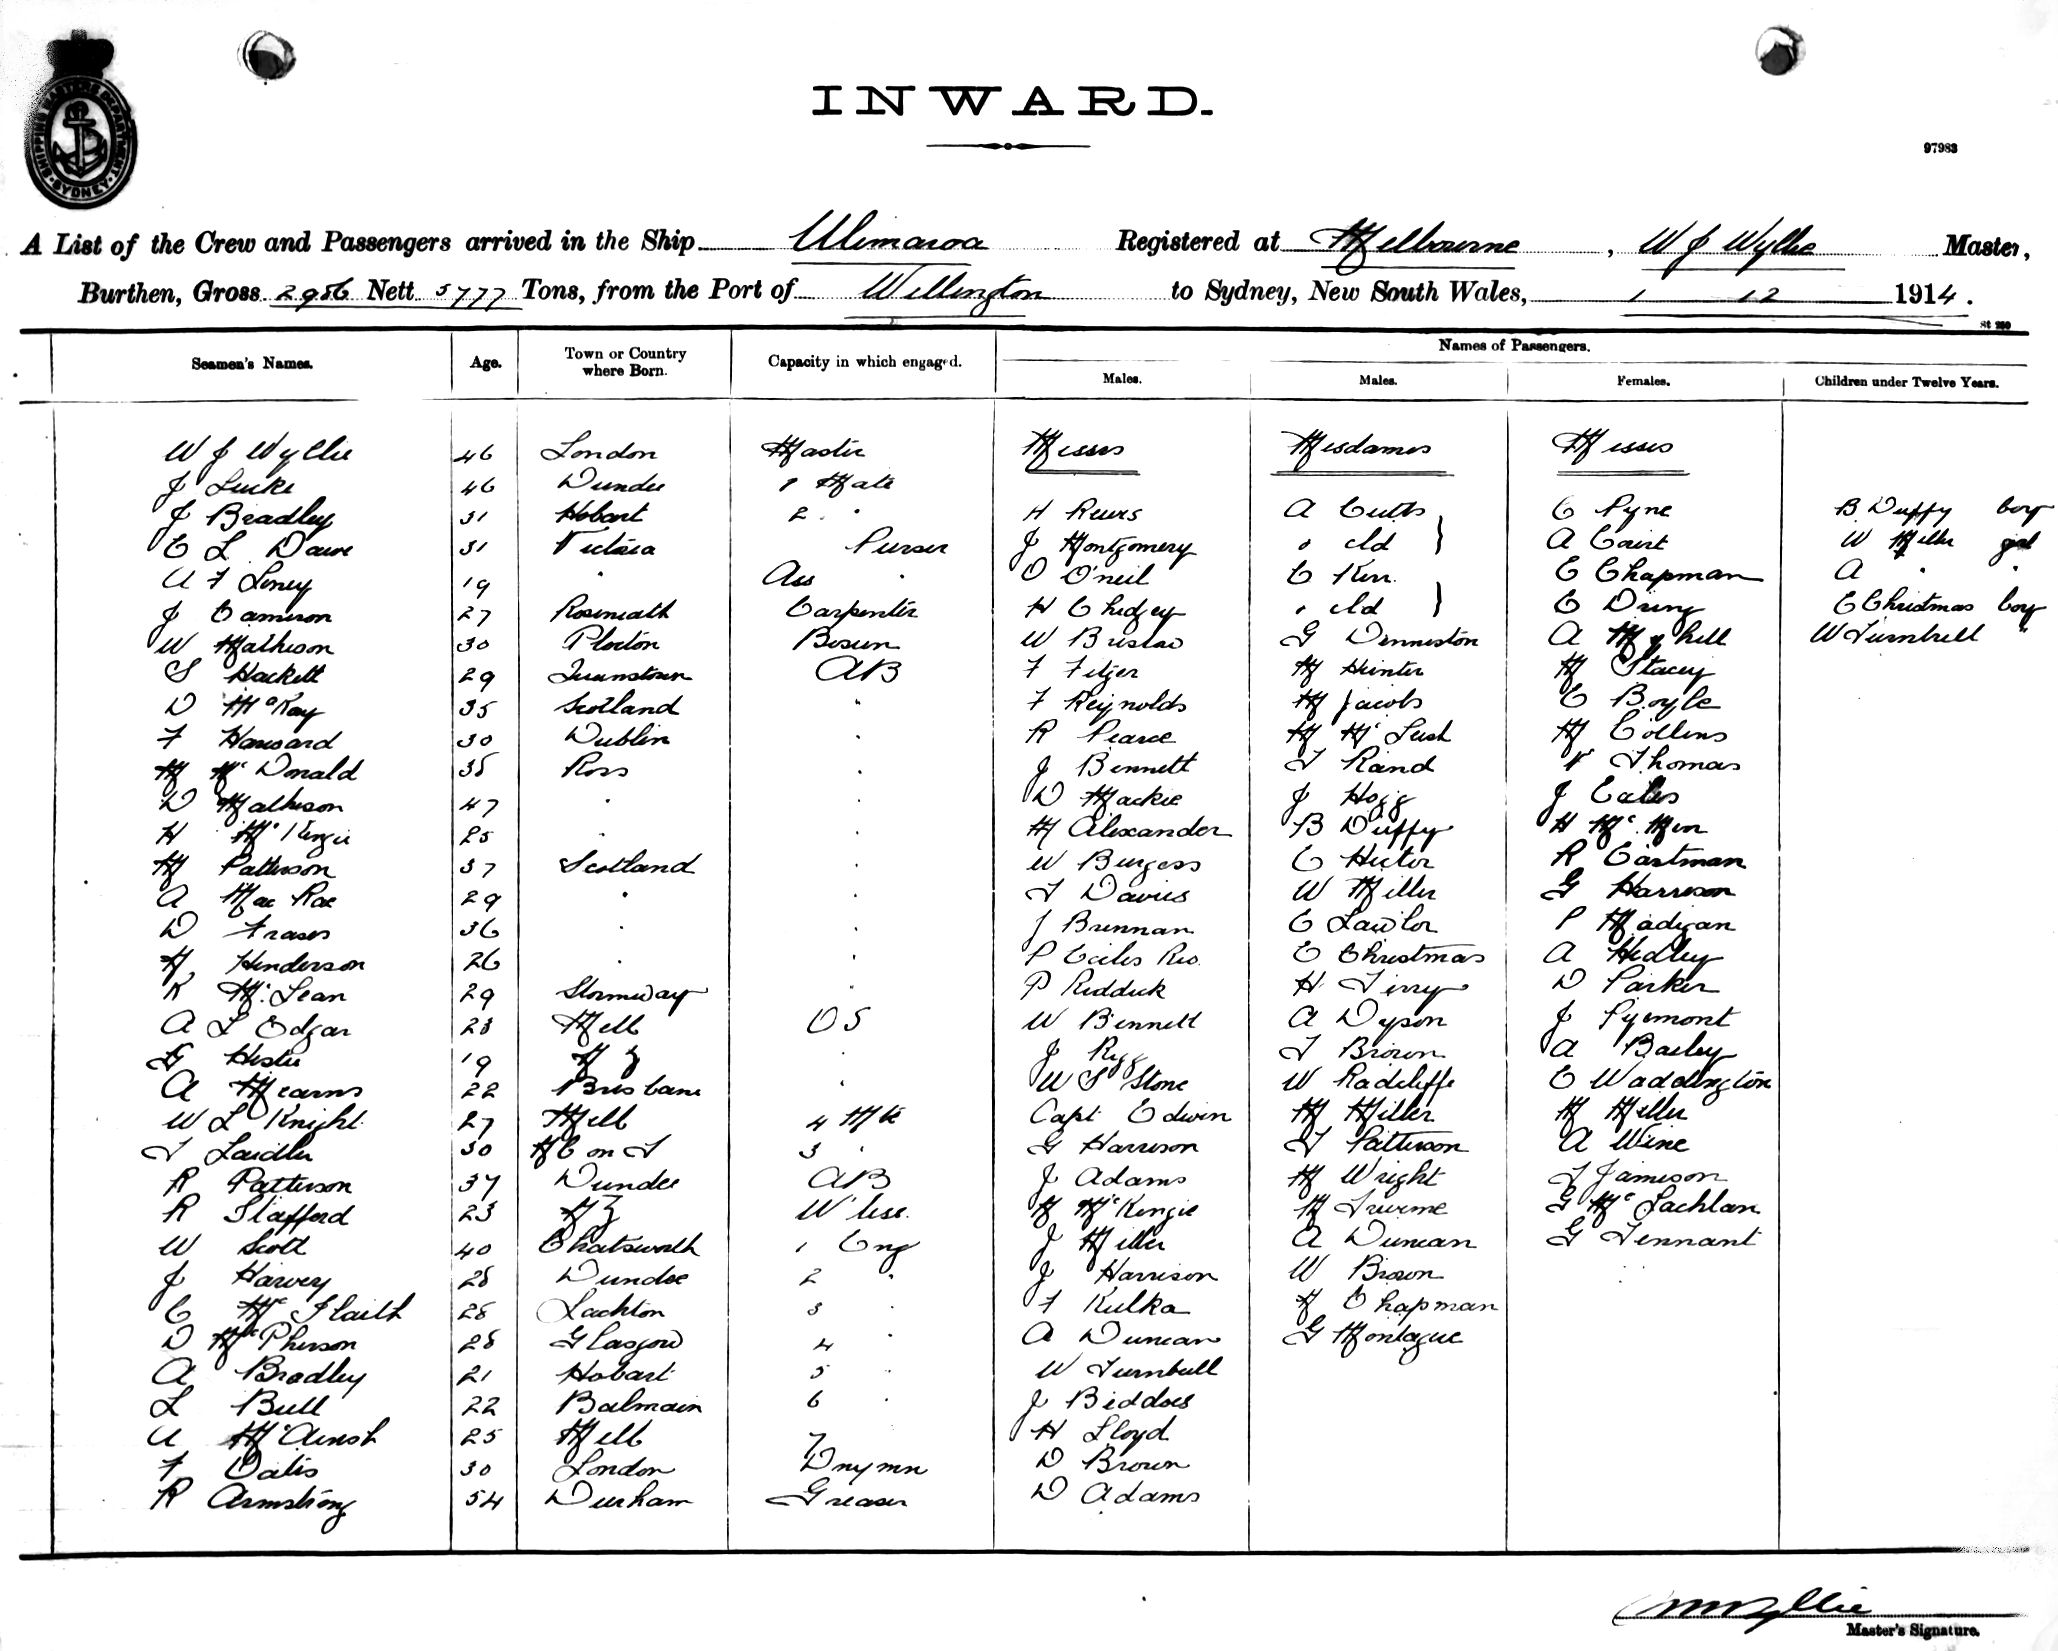 SHIPPING MASTER'S DEPARTMENT
SYDNEY
INWARD.
97983
A List of the Crew and Passengers arrived in the Ship Ulimaroa Registered at Melbourne, W J Wyllie Master,
Burthen, Gross 2956 Nett 5777 Tons, from the Port of Wellington to Sydney, New South Wales, 1 12 1914.
Names of Passengers.
Seamen's Names. Age. Town or Country where Born. Capacity in which engaged. Males. Males. Females. Children under Twelve Years.
W J Wyllie 46 London Master Messrs Mesdames Misses
J Luike 46 Dundee 1 Mate
J Bradley 31 Hobart 2 " H Rews A Cutts C Pyne B Duffy boy
C L Dawe 31 Victoria Purser J Montgomery " cld A Court W Miller girl
A F Loney 19 " Ass " O O'neil C Kerr C Chapman A " "
J Cameron 27 Roseneath Carpenter H Chidgey " cld C Dring C Christmas boy
W Mathison 30 Plockton Bosun W Bristow G Denniston A Myhill W Turnbull "
S Hackett 29 Queenstown AB F Fitzer M Hunter M Stacey
D McKay 35 Scotland " F Reynolds M Jacobs C Boyle
F Hansard 30 Dublin " R Pearce M McLush M Collins
M McDonald 38 Ross " J Bennett T Rand V Thomas
D Mathison 47 " " D Mackie J Hogg J Eales
H McKenzie 25 " " M Alexander B Duffy H McMen
M Patterson 37 Scotland " W Burgess C Hector R Eastman
A MacRae 29 " " T Davies W Miller G Harrison
D Fraser 36 " " J Brennan C Lawlor P Madigan
N Henderson 26 " " P Eccles Rev. C Christmas A Hedley
R McLean 29 Stornoway " P Reddick H Terry D Parker
A L Edgar 23 Melb OS W Bennett A Dyson J Pyemont
G Heslie 19 N Z " J Rigg T Brown A Bailey
A Mearns 22 Brisbane " W S Stone W Radcliffe C Waddington
W L Knight 27 Melb 4 Mte Capt Edwin M Miller M Miller
T Laidler 30 N C on T 3 " G Harrison T Patterson A Wine
R Patterson 37 Dundee AB J Adams M Wright T Jameson
R Stafford 23 N Z W'less. M McKenzie M Trueme G McLachlan
W Scott 40 Chatsworth 1 Eng J Miller A Duncan G Tennant
J Harvey 28 Dundee 2 " J Harrison W Brown
C McIlaith 28 Lachton 3 " F Kulka N Chapman
D McPherson 28 Glasgow 4 " A Duncan G Montague
A Bradley 21 Hobart 5 " W Turnbull
L Bull 22 Balmain 6 " J Beddoes
A McAinsh 25 Melb 7 H Lloyd
F Oatis 30 London Dnymn D Brown
R Armstrong 54 Durham Greaser D Adams
W J Wyllie
Master's Signature.